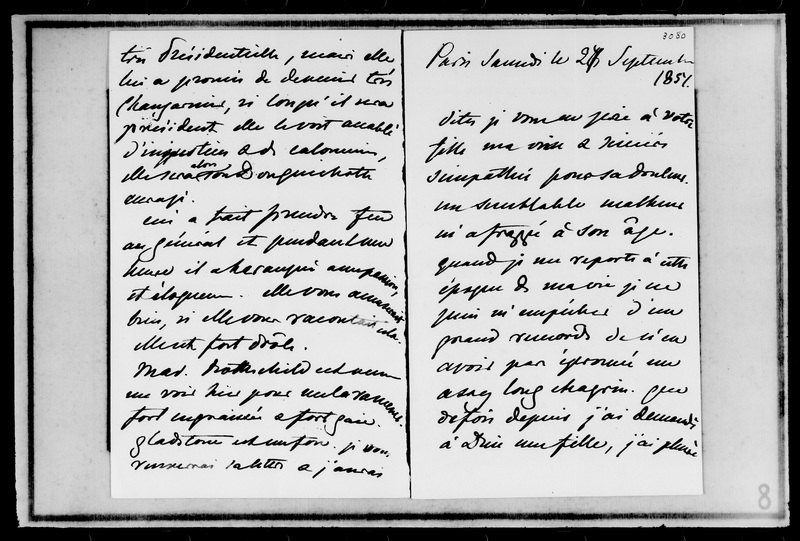 3080
Paris Samedi le 27 Septembre
1851.
dites je vous en prie à votre
fille ma vive & sincère
sympathie pour sa douleur.
un semblable malheur
m'a frappé à son âge.
quand je me reporte à cette
époque de ma vie je ne
puis m'empêcher d'un
grand remords de n'en
avoir pas éprouvé un
assez long chagrin. que
de fois depuis j'ai demandé
à Dieu une fille, j'ai pleuré
très Présidentielle, mais elle
lui a promis de devenir très
Changarnier, si lorsqu'il sera
président elle le voit accablé
d'injustices & de calomnies,
elle sera alors son Donquichotte
enragé.
ceci a fait prendre feu
au général et pendant une
heure il a harangué avec passion,
et éloquence. elle vous amuserait
bien, si elle vous racontait cela.
elle est fort drôle.
Mad. Rothschild est venue
me voir hier
fort engraissée & fort gaie.
Gladstone est un fou. je vous
renverrai sa lettre & j'aurai
8